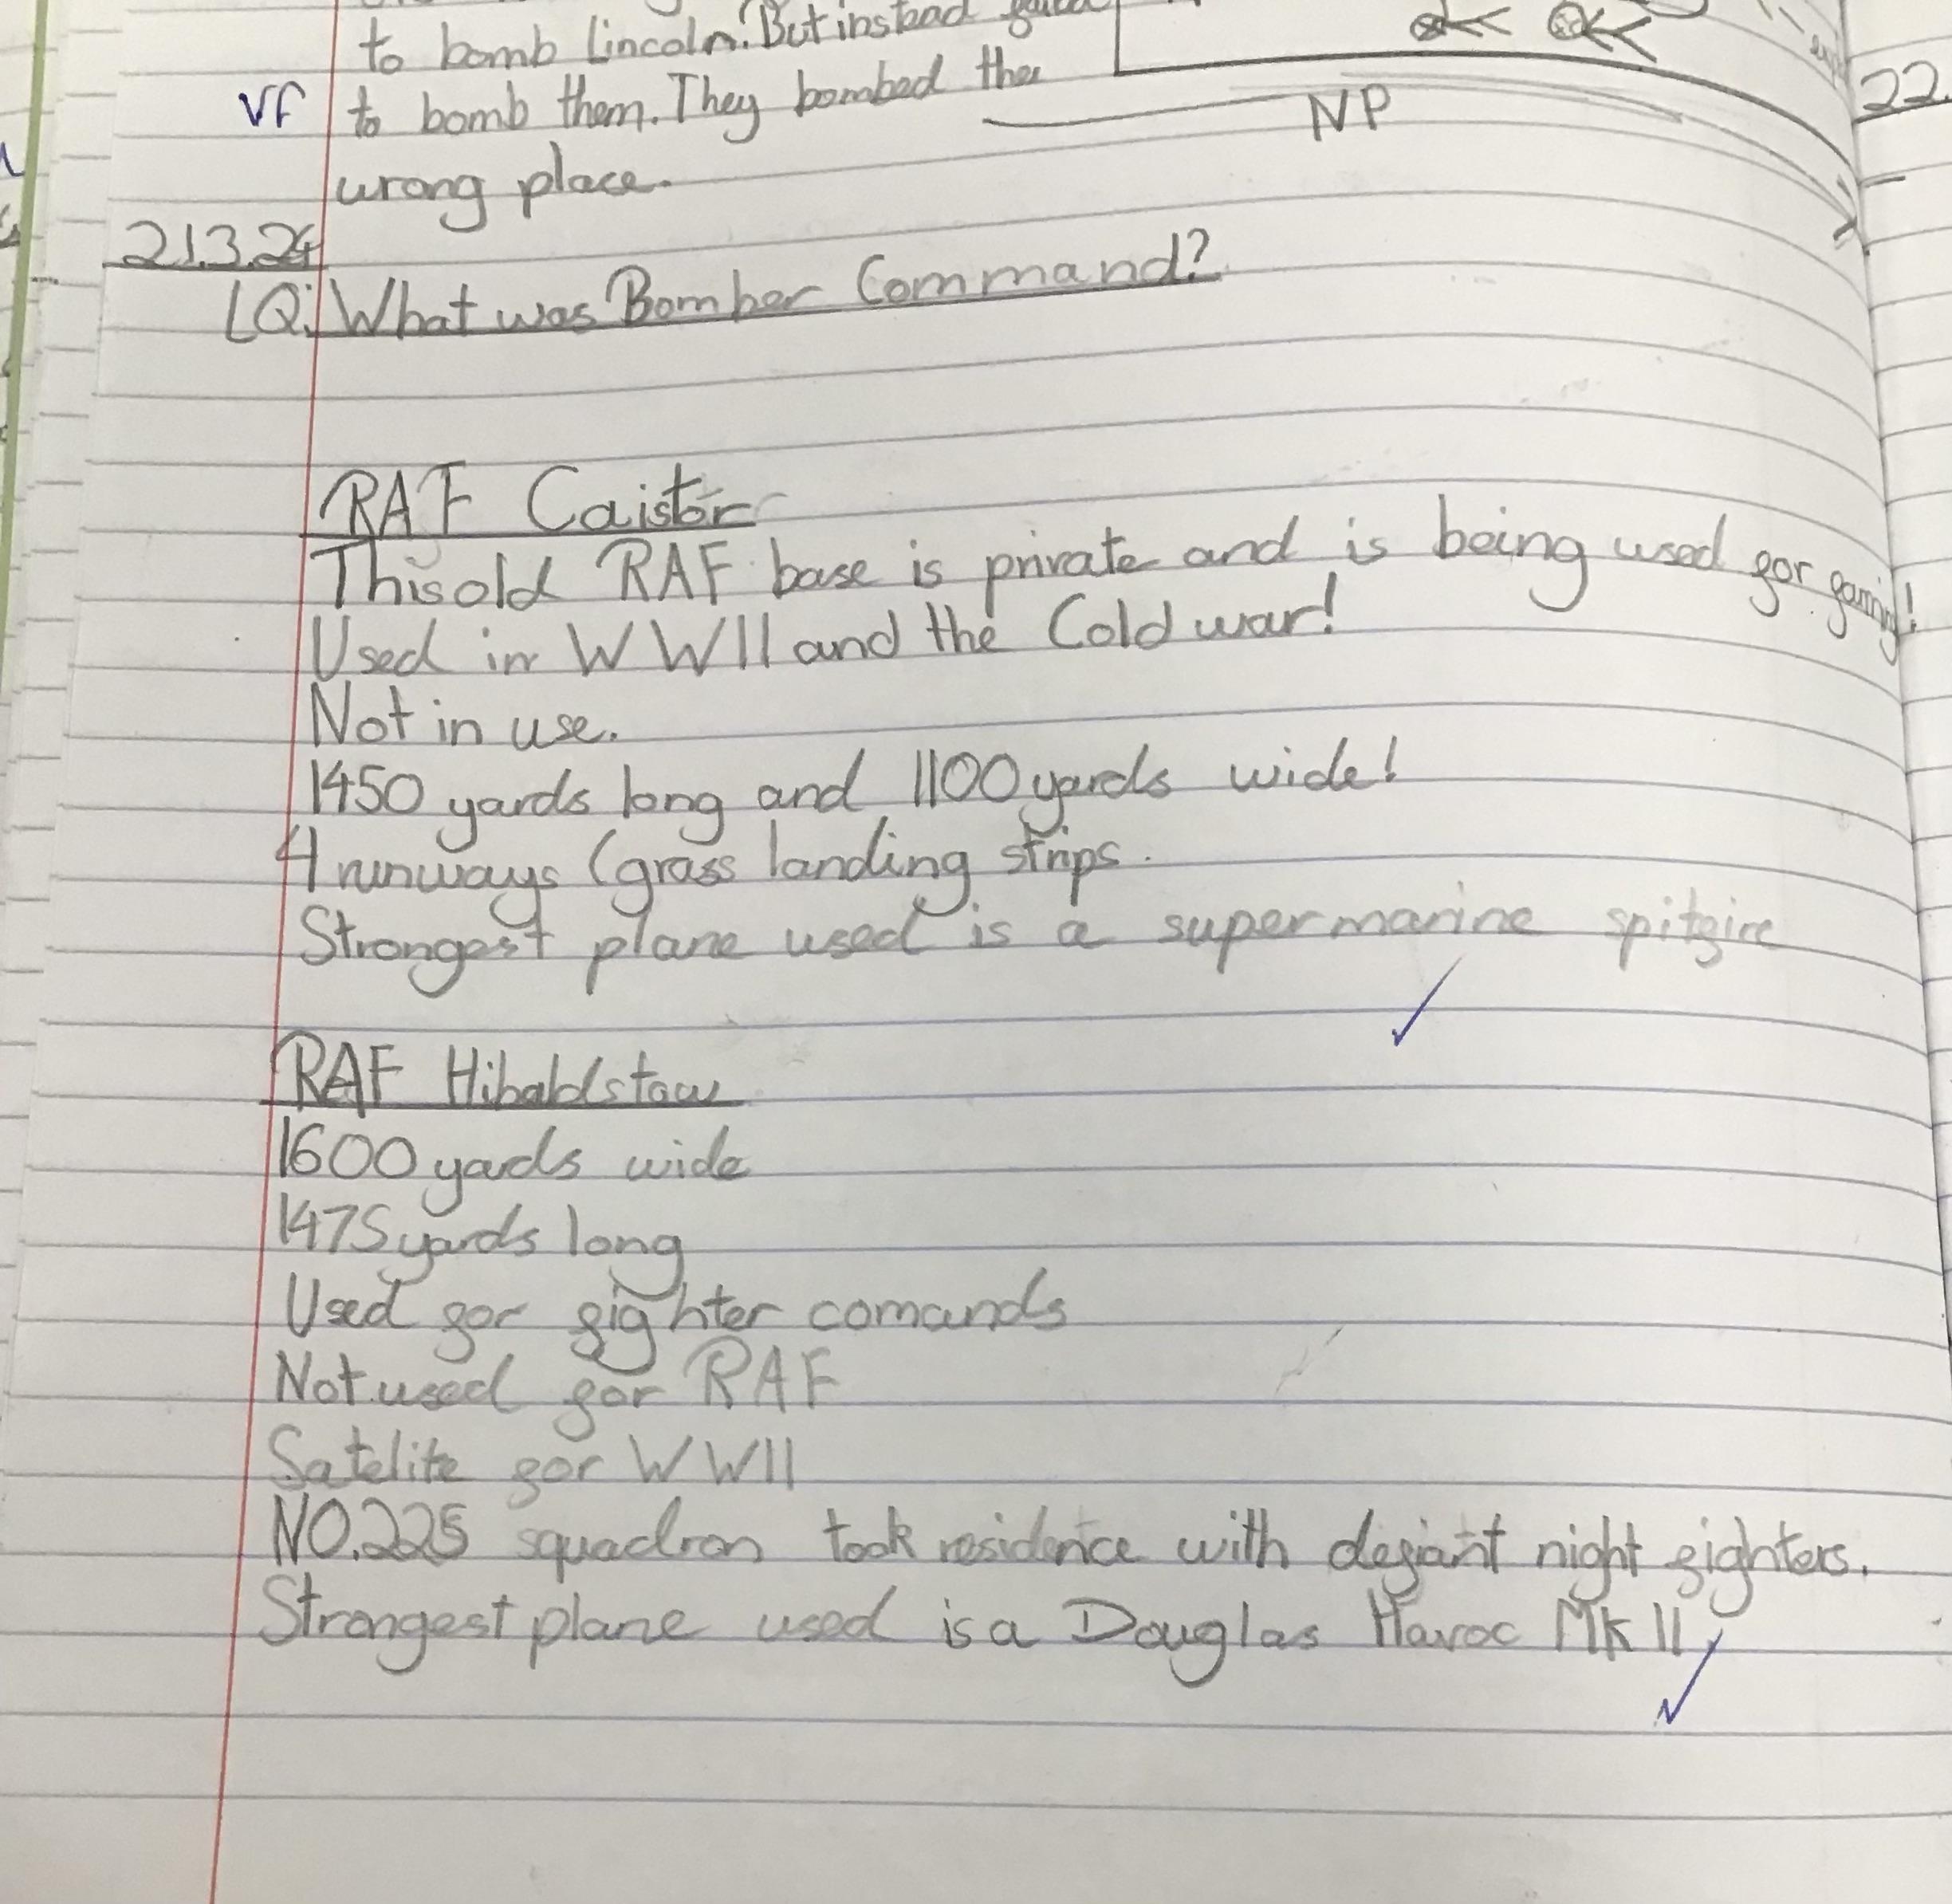 to bomb Lincoln. But instead
VF to bomb them. They bombed the
NP
wrong place.
22.
21.3.24
LQ: What was Bomber Command?
RAF Caistor
This old RAF base is private and is being used for gaming!
Used in WWII and the Cold war!
Not in use.
1450 yards long and 1100 yards wide!
4 runways (grass landing strips.
Strongest plane used is a supermarine spitfire
RAF Hibaldstow
1600 yards wide
1475 yards long
Used for fighter comands
Not used for RAF
Satelite for WWII
NO.225 squadron took residence with defiant night fighters.
Strongest plane used is a Douglas Havoc Mk II